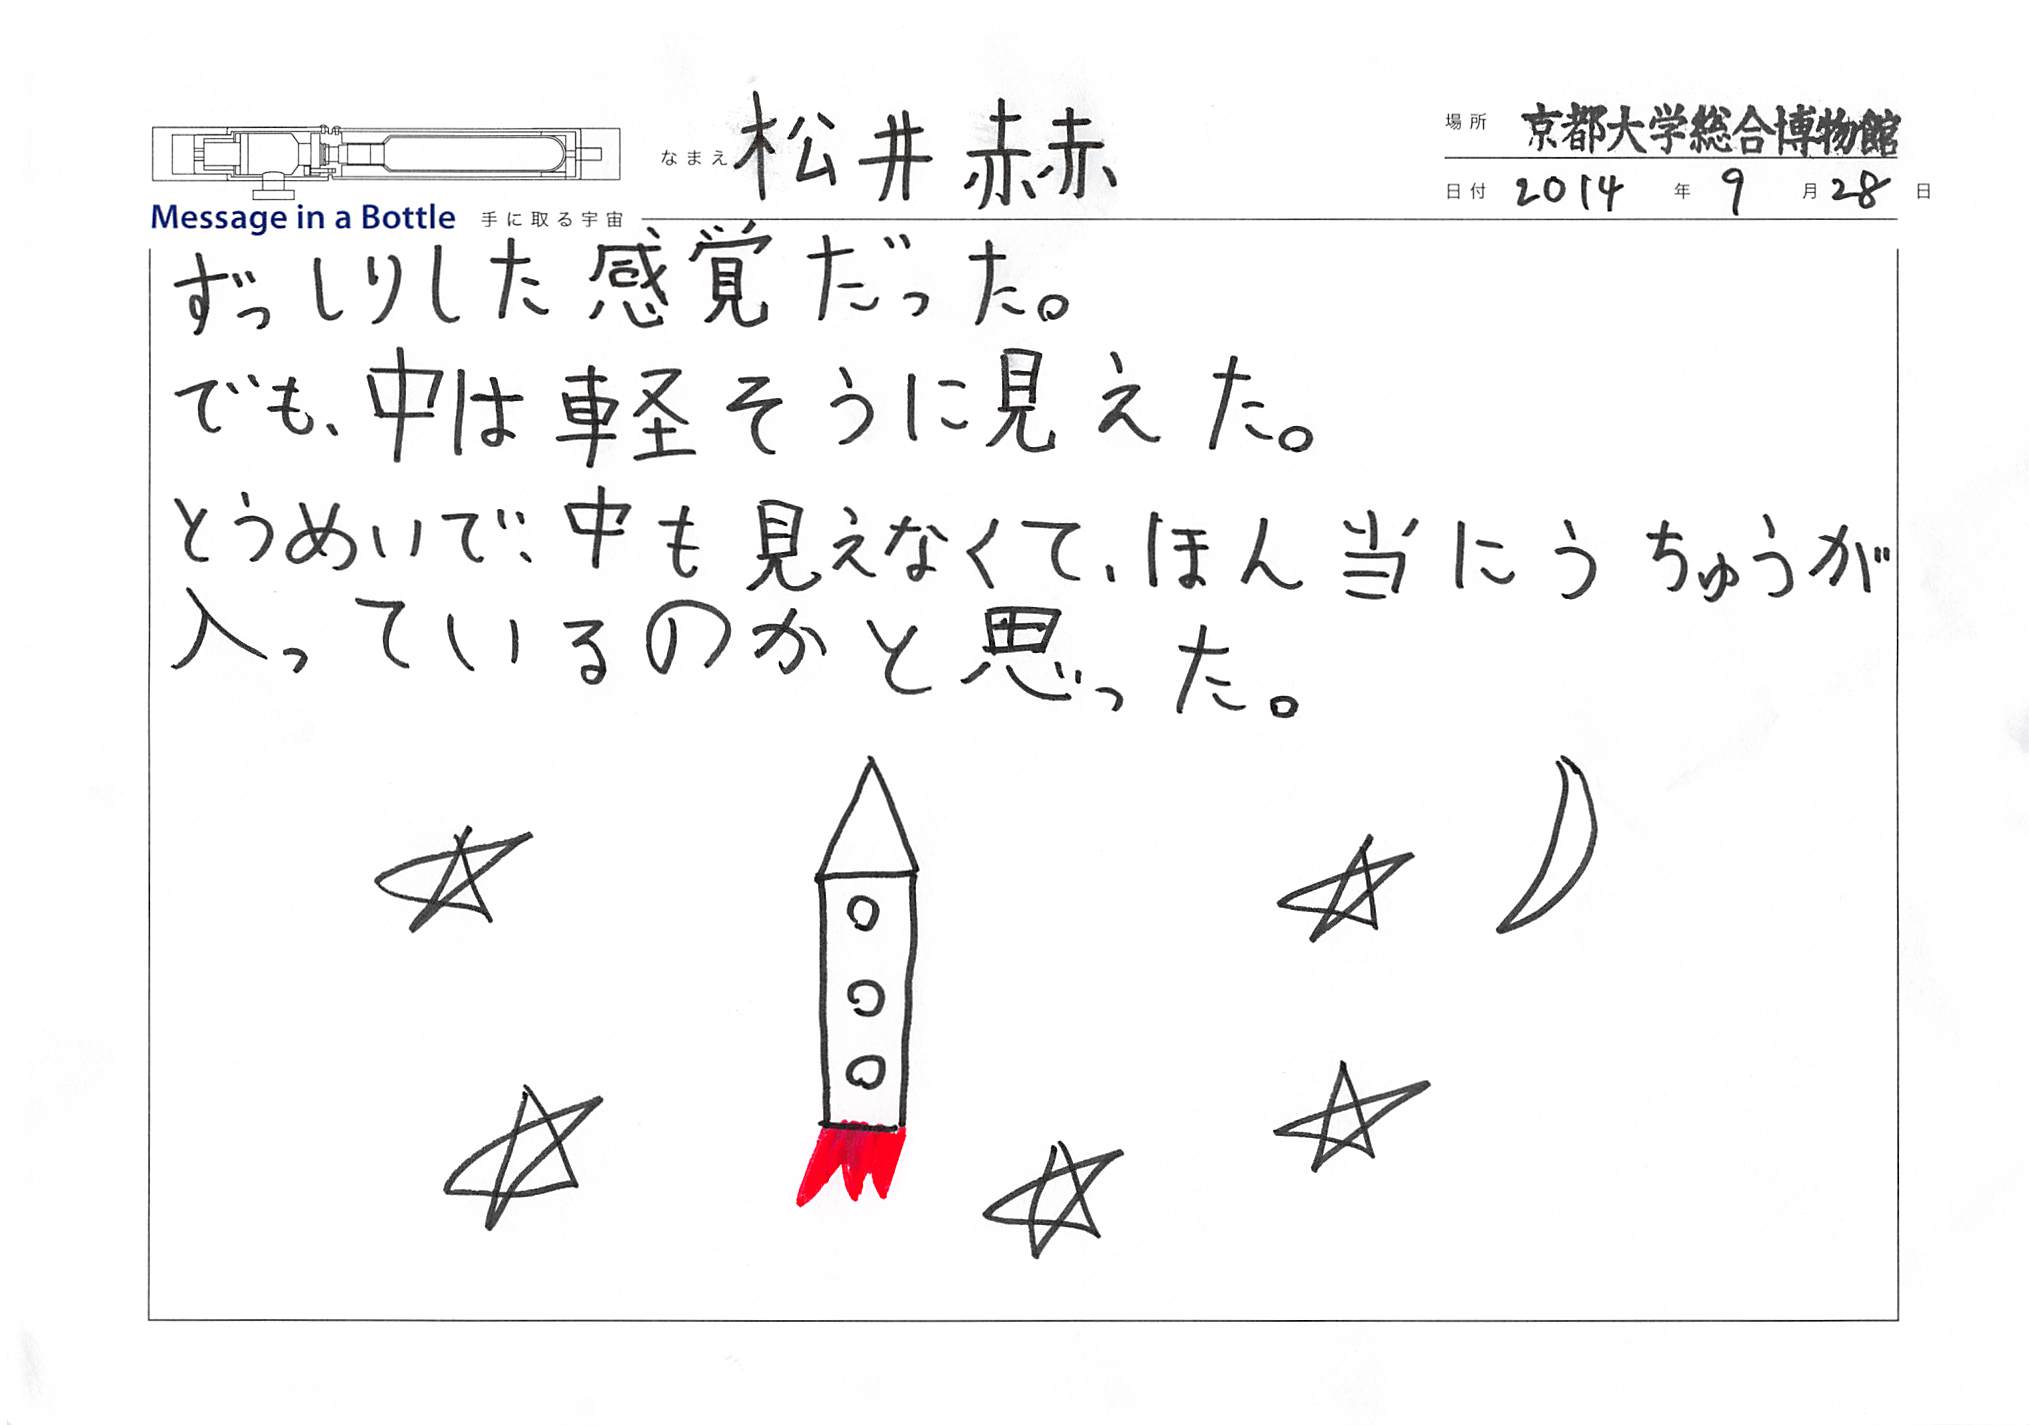 なまえ 松井赫
場所 京都大学総合博物館
日付 2014 年 9 月 28 日
Message in a Bottle 手に取る宇宙
ずっしりした感覚だった。
でも、中は軽そうに見えた。
とうめいで、中も見えなくて、ほん当にうちゅうが
入っているのかと思った。